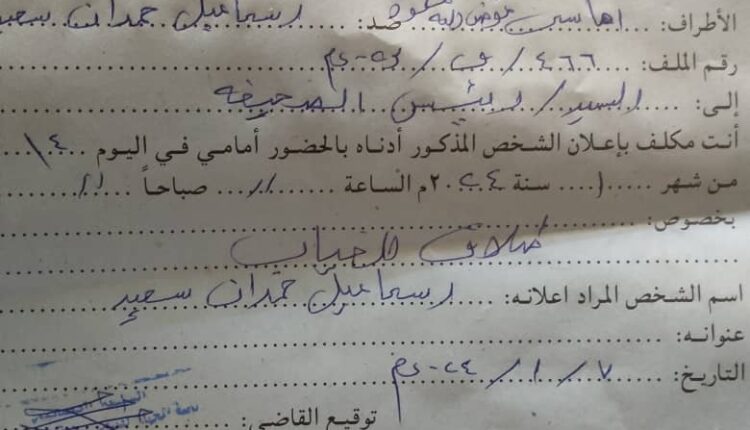 الأطراف: ... عوض ... ضد: إسماعيل حمدان سعيد
رقم الملف: ٤٦٦/ق/
إلى: السيد/ رئيس الصحيفة
أنت مكلف بإعلان الشخص المذكور أدناه بالحضور أمامي في اليوم ١٤
من شهر ١ سنة ٢٠٢٤م الساعة ١١ صباحاً
بخصوص:
طلاق للغياب
اسم الشخص المراد اعلانه: إسماعيل حمدان سعيد
عنوانه:
التاريخ: ٧/١/٢٠٢٤م
توقيع القاضي: